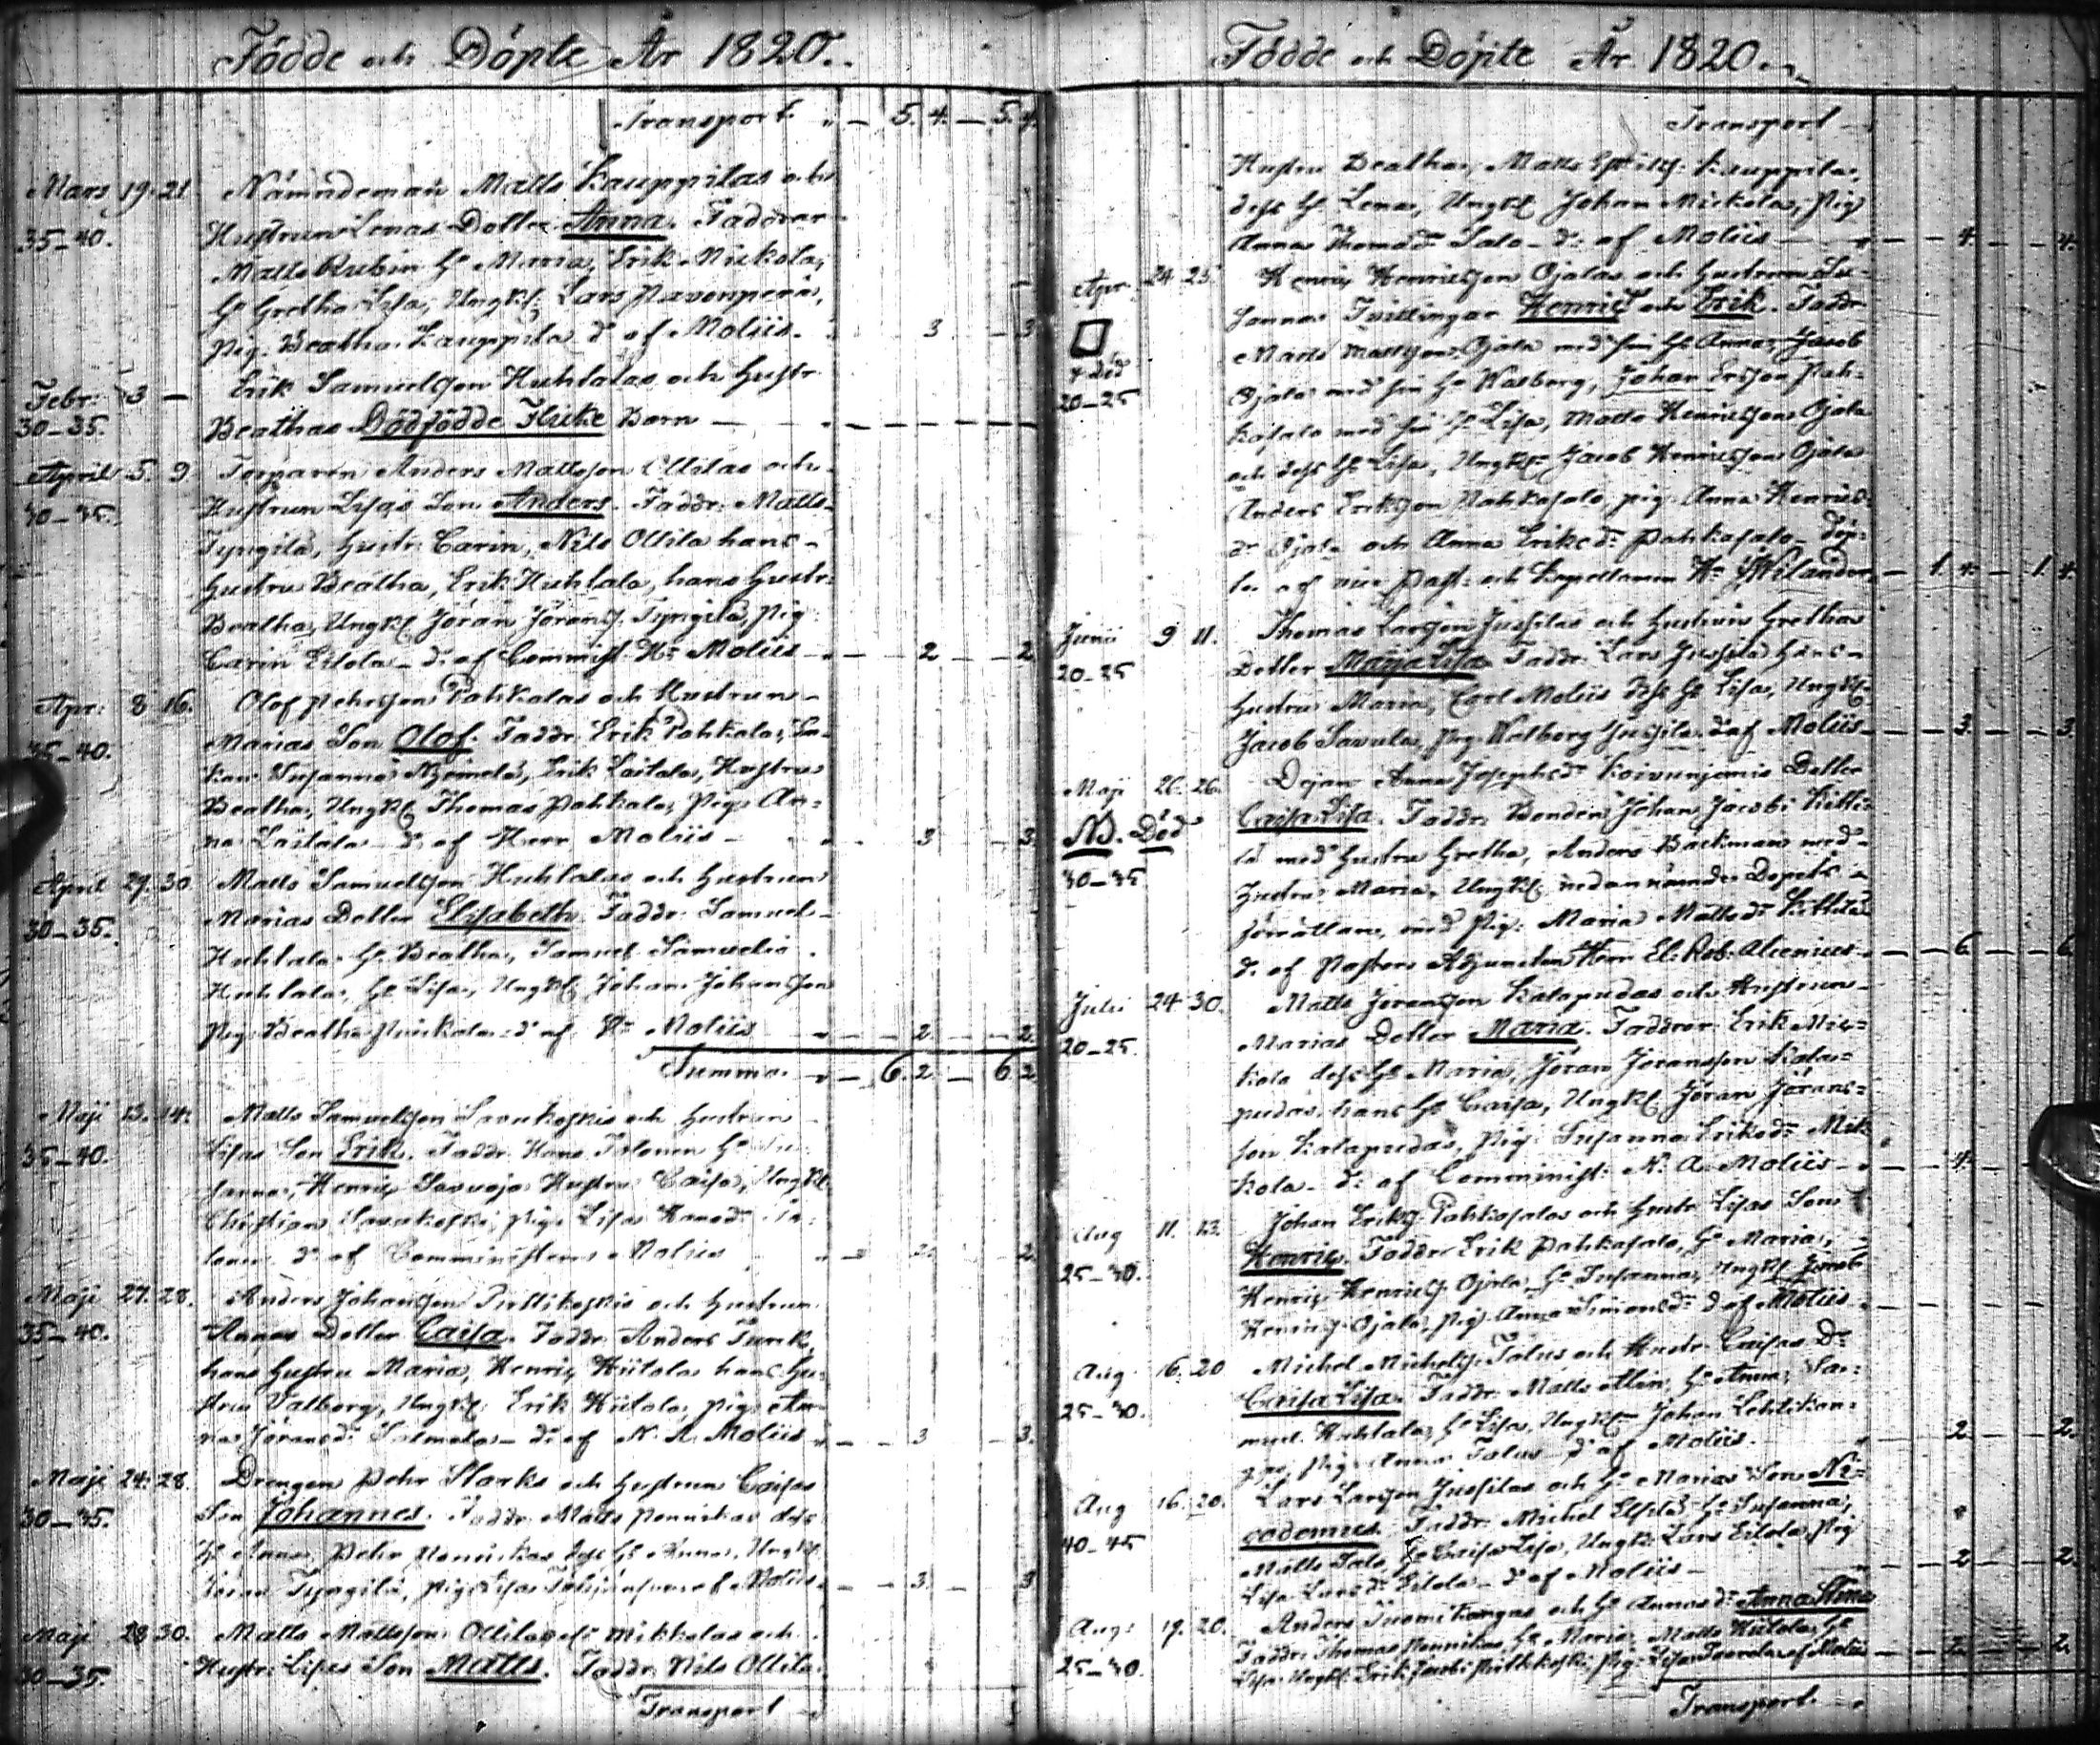 Födde och Döpte År 1820.
Transport „ — 5. 4. — 5. 4.
Mars 19. 21. Nämndeman Matts Kauppilas och
35–40. Hustrun Lenas Dotter Anna. Faddrar
Matts Rubin Hu Maria, Erik Mickola,
Hu Gretha Lisa, Ungkl: Lars Pavonperä,
Pig. Beatha Kauppila d. af Moliis. 3 – 3
Febr: 3 — Erik Samuelsson Huhtalas och Hustr
30–35. Beathas Dödfödde Flicke Barn —
April 5. 9 Torparen Anders Mattsson Ollilas och
30–35. Hustrun Lisas Son Anders. Faddr: Matts
Tyngilä, Hustr: Carin, Nils Ollila hans
Hustru Beatha, Erik Huhtala, hans Hustr:
Beatha, Ungkl. Jöran Jöranss. Tyngilä, Pig:
Carin Eilola – d. af Commist. Hr Moliis — 2 — 2
Apr: 8 16. Olof Pehrsson Pahkalas och Hustrun
35–40. Marias Son Olof. Faddr. Erik Pahkala,
Susanna Erik Laitala, Hustru
Beatha, Ungkl Thomas Pahkala, Pig: An=
na Laitala – d. af Herr Moliis – 3 – 3
April 29. 30 Matts Samuelsson Huhtalas och Hustrun
30–35. Marias Dotter Elisabeth. Faddr. Samuel
Huhtala Hu Beatha, Samuel Samuels
Huhtala, Hu Lisa, Ungkl Johan Johansson
Pig: Beatha d. af Hr Moliis — 2 — 2
Summa „ — 6. 2 — 6 2
Maji 13. 14. Matts Samuelsson Savukoskis och Hustrun
35–40. Lisas Son Erik. Faddr. Hans Hu Su=
sanna, Henric Savuoja Hustru Caisa, Ungkl
Christian Savukoski, Pig: Lisa Hansdr
d. af Comministern Moliis 2. 2
Maji 27. 28. Anders Johansson Pirttikoskis och Hustrun
35–40. Annas Dotter Caisa. Faddr. Anders
hans Hustru Maria, Henric Hiitola hans Hu=
stru Valborg, Ungkl: Erik Hiitola, Pig: An=
na Jöransdr Salmela – dr af N. A. Moliis — 3 – 3.
Maji 24. 28. Drengen Pehr Starks och Hustrun Caisas
30–35. Son Johannes. Faddr. Matts Pennikas dess
Hu Anna, Pehr Pennikas dess Hu Anna, Ungkl
Jöran Tyngilä, Pig: Lisa af Moliis — 3. — 3
Maji 28 30. Matts Mattsson Ollilas Mikkolas och
30–35. Hustr: Lisas Son Matts. Faddr. Nils Ollila
Transport
Födde och Döpte År 1820.
Transport
Hustru Beatha, Matts Kauppila,
dess Hu Lena, Ungkl Johan Mickola, Pig
Anna Thomasdr Salo – dr af Moliis — 4 — 4.
Apr 24 25. Henric Henricsson Ojalas och Hustrun Su=
sannas Tvillingar Henric och Erik. Faddr
Matts Mattsson Ojala med sin Hu Anna, Jacob
+ död Ojala med sin Hu Walborg, Johan Ersson Pah=
20–25 kasalo med sin Hu Lisa, Matts Henricsson Ojala
och dess Hu Lisa, Ungkl: Jacob Henricsson Ojala
Anders Eriksson Pahkasalo, pig. Anna Henrics=
dr Ojala och Anna Eriksdr Pahkasalo – döp=
te af vice Past: och Kapellanen Hr Wilander — 1. 4 — 1. 4.
Junii 9 11. Thomas Larsson Jussilas och Hustrun Grethas
20–25 Dotter Maja Lisa. Faddr. Lars Jussila hans
Hustru Maria, Carl Moliis dess Hu Lisa, Ungkl
Jacob Savula, Pig. Walborg Jussila. d. af Moliis — 3. — 3.
Maji 26. 26. Anna Josephsdr Koivunjemis Dotter
NB. Död Caisa Lisa. Faddr. Bonden Johan Jacobs
30–35 med Hustru Gretha, Anders Bäckman med
Hustru Maria, Ungkl
med Pig: Maria Mattsdr
d. af Pastors Adjuncten Herr El. Rob. Alcenius — 6 — 6
Julii 24 30. Matts Jöransson Kalapudas och Hustrun
20–25. Marias Dotter Maria. Faddrar: Erik Mic=
kola dess Hu Maria, Jöran Jöransson Kala=
pudas, hans Hu Caisa, Ungkl Jöran Jörans=
son Kalapudas, Pig: Susanna Eriksdr Mik
kola – d. af Comminist: N. A. Moliis — 4.
Aug 11. 13. Johan Erikss. Pahkasalos och Hustr Lisas Son
25–30. Henric. Faddr Erik Pahkasalo, Hu Maria,
Henric Henricss. Ojala, Hu Susanna, Ungkl Jacob
Henricss. Ojala, Pig. Anna Simonsdr d. af Moliis
Aug 16. 20 Michel Michelss. Talus och Hustr Caisas Dr
25–30. Caisa Lisa. Faddr. Matts Alin, Hu Anna, Sa=
muel Huhtala, Hu Lisa, Ungkl Johan Lehtikan=
gas, Pig Anna Talus – d. af Moliis. 2 — 2.
Aug 16. 20. Lars Larsson Jussilas och Hu Marias Son Ni=
40–45 codemus. Faddr. Michel Hu Susanna,
Matts Salo, Hu Caisa Lisa, Ungk: Lars Eilola, Pig
Lisa Larsdr Eilola – d. af Moliis – 2 — 2.
Aug: 19. 20. Anders Tuomikangas och Hu Annas dr Anna Stina
25–30. Faddr. Thomas Pennikas, Hu Maria. Matts Hiitola, Hu
Lisa. Ungkl. Erik Jacobs Pirttikoski, Pig: Lisa af Moliis — 2. — 2.
Transport